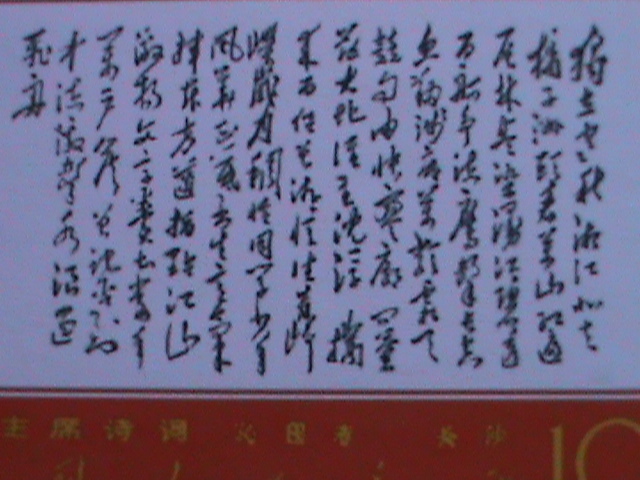 独立寒秋湘江北去
橘子洲头看万山红遍
层林尽染漫江碧透
百舸争流鹰击长空
鱼翔浅底万类霜天
竞自由怅寥廓问苍
茫大地谁主沉浮携
来百侣曾游忆往昔峥
嵘岁月稠恰同学少年
风华正茂书生意气
挥斥方遒指点江山
激扬文字粪土当年
万户侯曾记否到
中流击水浪遏
飞舟
主席诗词 沁园春 长沙 10